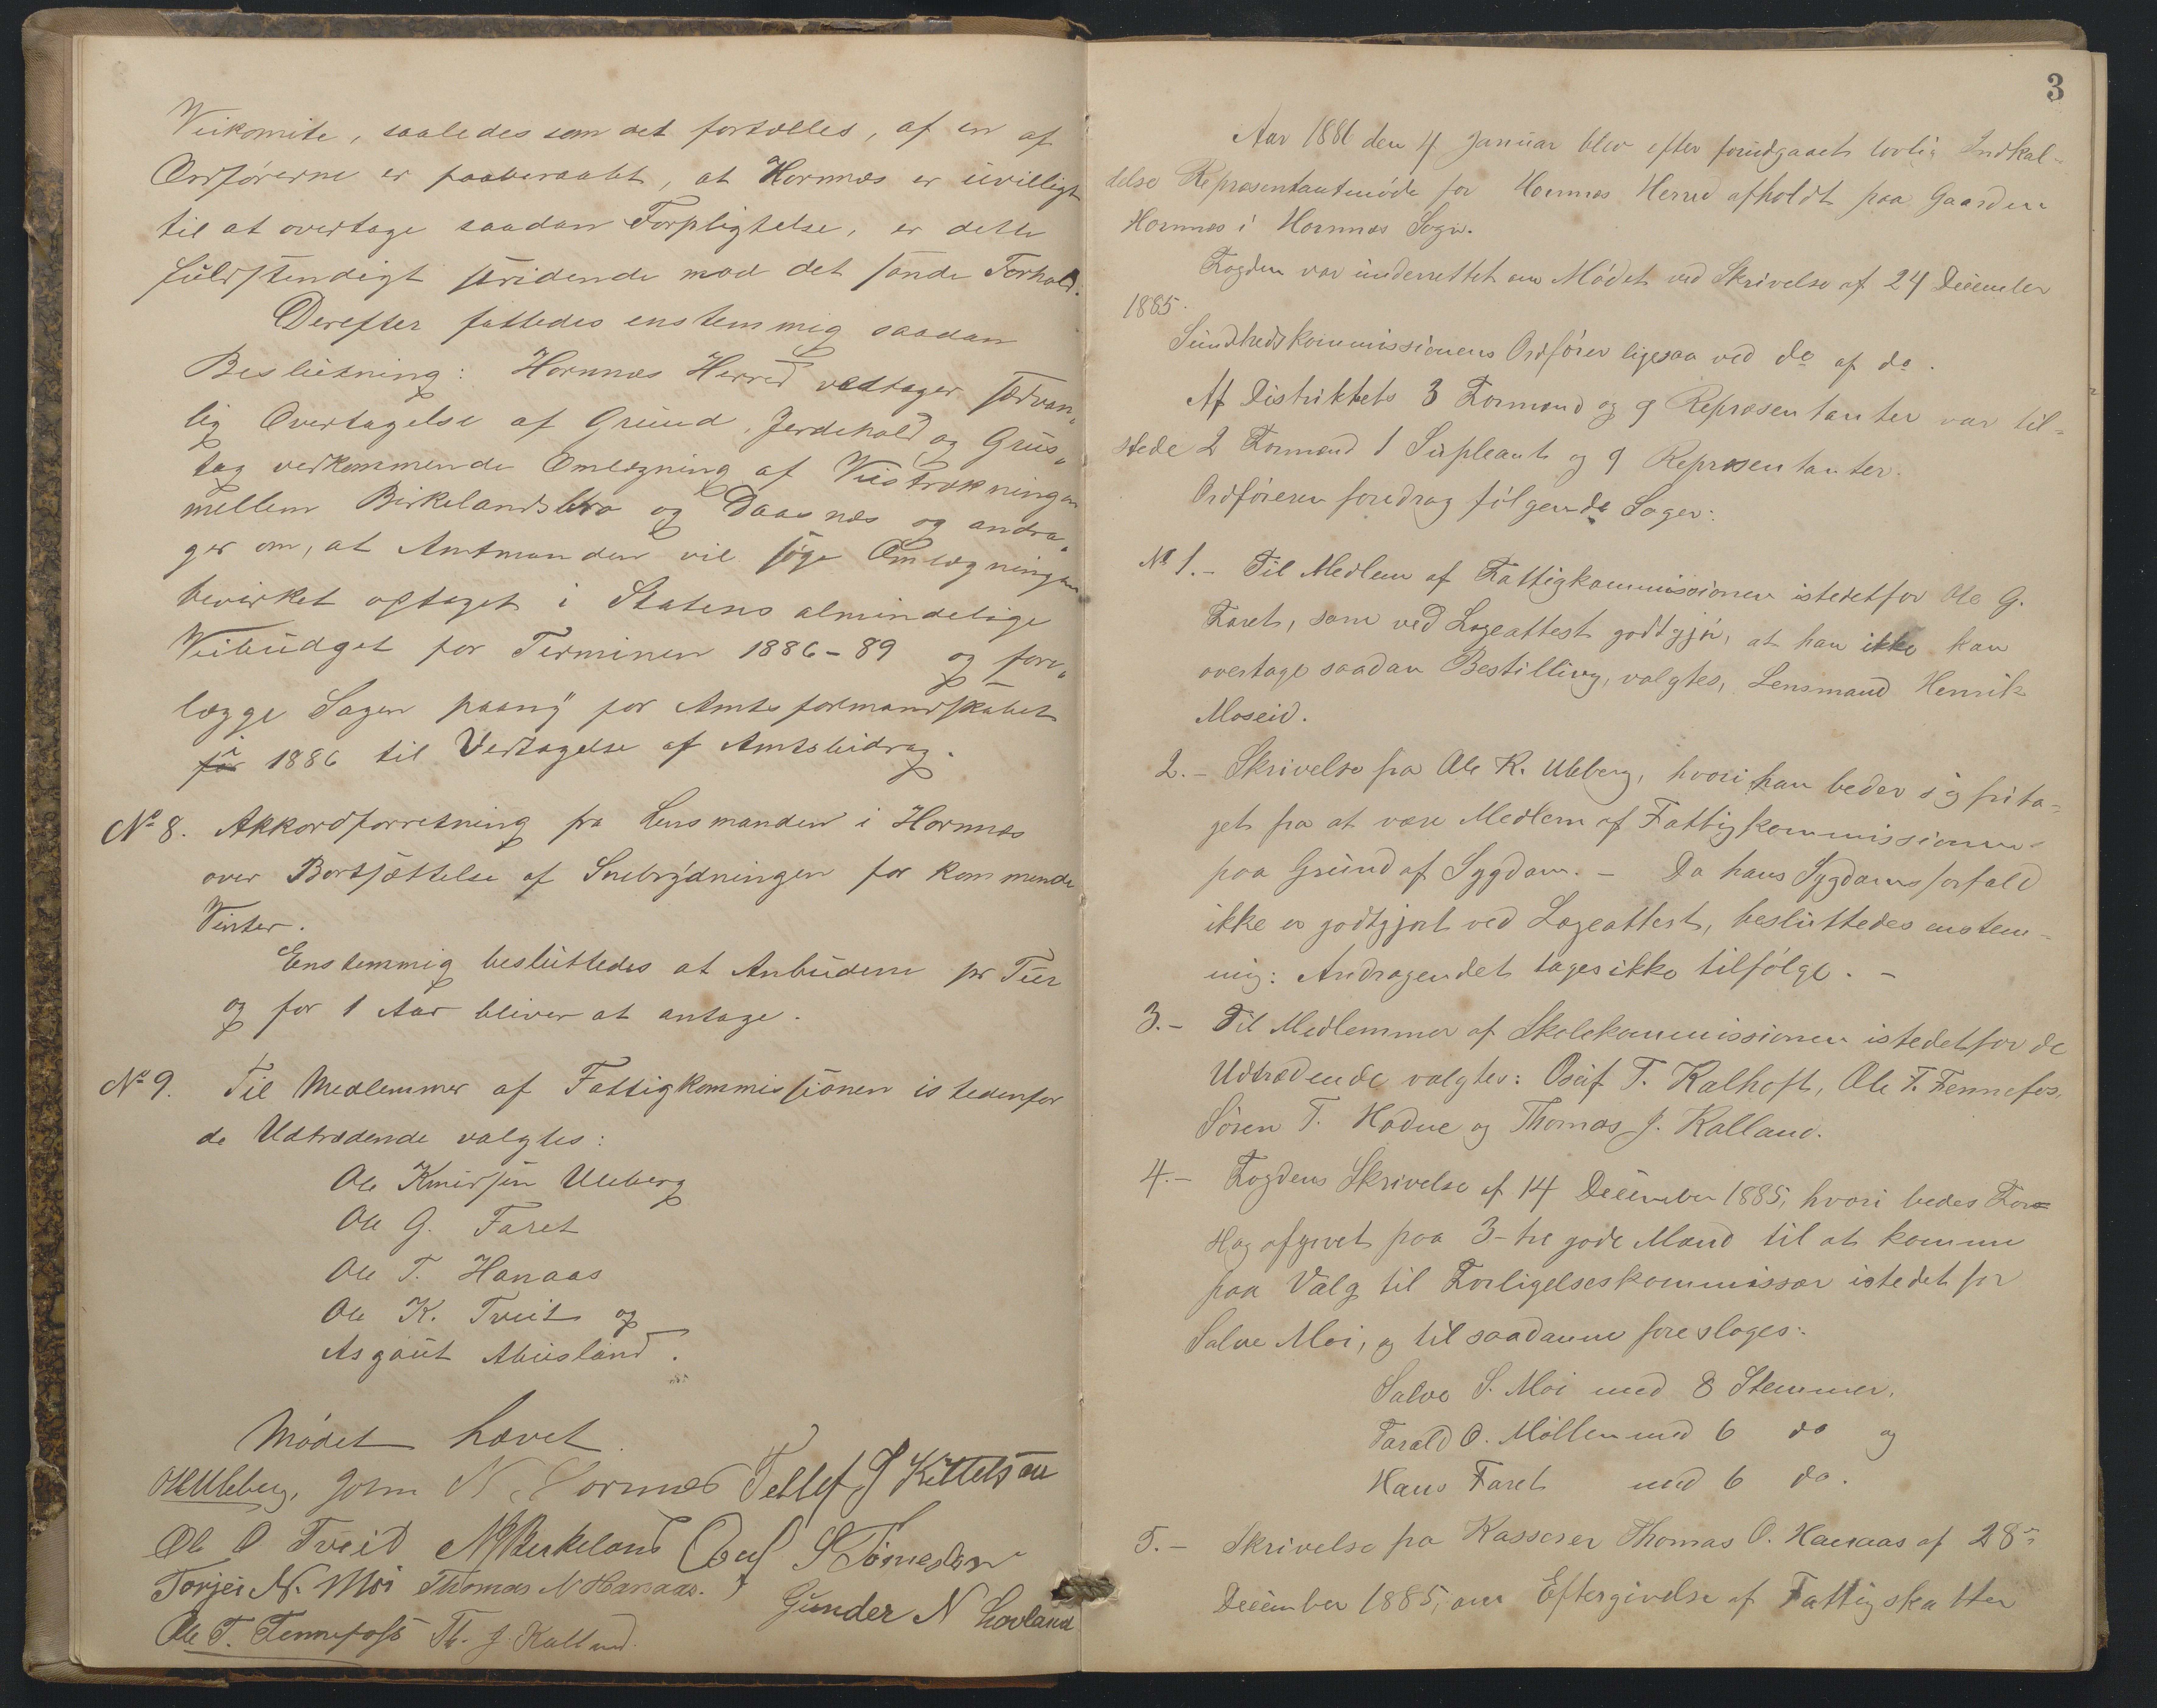 Veikomite, saaledes som det fortælles, af en af
Ordførerne er paaberaabt, at Hornnæs er uvilligt
til at overtage saadan Forpligtelse, er dette
fuldstendigt stridende mod det sande Forhold.
Derefter fattedes enstemmig saadan
Beslutning: Hornnæs Herred vedtager sædvan-
lig Overtagelse af Grund, Jerdehold og Grus-
tag vedkommende Omlægning af Veistrækningen
mellem Birkelandsbro og Daasnæs og andra-
ger om, at Amtmanden vil søge Omlægningen
bevirket optaget i Statens almindelige
Veibudget for Terminen 1886-89 og fore-
lægge Sagen paany for Amtsformandskabet
i 1886 til Vedtagelse af Amtsbidrag.
No 8. Akkordforretning fra Lensmanden i Hornnæs
over Bortsættelse af Snebrydningen for kommende
Vinter.
Enstemmig besluttedes at Anbudene pr Tur
og for 1 Aar bliver at antage.
No 9. Til Medlemmer af Fattigkommissionen istedenfor
de Udtrædende valgtes:
Ole Knudsen Uleberg
Ole G. Faret
Ole T. Hanaas
Ole K. Tveit og
Asgaut Abusland.
Mødet hævet.
OKUleberg, John N. Hornnes Tellef J Kittelsen
Ole O Tveid N Birkeland Osuf S
Torjei N. Moi Thomas N Hanaas. Gunder N Lovland
Ole T. Fennefoss Th. J. Kalland.
3
Aar 1886 den 4 Januar blev efter forudgaaet lovlig Indkal-
delse Repræsentantmøde for Hornnæs Herred afholdt paa Gaarden
Hornnæs i Hornnæs Sogn.
Fogden var underrettet om Mødet ved Skrivelse af 24 December
1885.
Sundhedskommissionens Ordfører ligesaa ved do af do.
Af Distriktets 3 Formænd og 9 Repræsentanter var til-
stede 2 Formænd 1 Supleant og 9 Repræsentanter.
Ordføreren foredrog følgende Sager:
No 1.- Til Medlem af Fattigkommissionen istedetfor Ole G.
Faret, som ved Lægeattest godtgjør, at han ikke kan
overtage saadan Bestilling, valgtes, Lensmand Henrik
Moseid.
2.- Skrivelse fra Ole K. Uleberg, hvori han beder sig frita-
get fra at være Medlem af Fattigkommissionen
paa Grund af Sygdom. - Da hans Sygdomsforfald
ikke er godtgjort ved Lægeattest, besluttedes enstem-
mig: Andragendet tages ikke tilfølge. -
3.- Til Medlemmer af Skolekommissionen istedetfor de
Udtrædende valgtes: Osuf T. Kalhoft, Ole T. Fennefos,
Søren T. Hodne og Thomas J. Kalland.
4.- Fogdens Skrivelse af 14 December 1885, hvori bedes For-
slag afgivet paa 3-tre gode Mænd til at komme
paa Valg til Forligelseskommissær istedet for
Salve Moi, og til saadanne foresloges:
Salve S. Moi med 8 Stemmer.
Tarald O. Møllen med 6 do og
Hans Faret med 6 do.
5.- Skrivelse fra Kasserer Thomas O. Hanaas af 28de
December 1885, om Eftergivelse af Fattigskatter